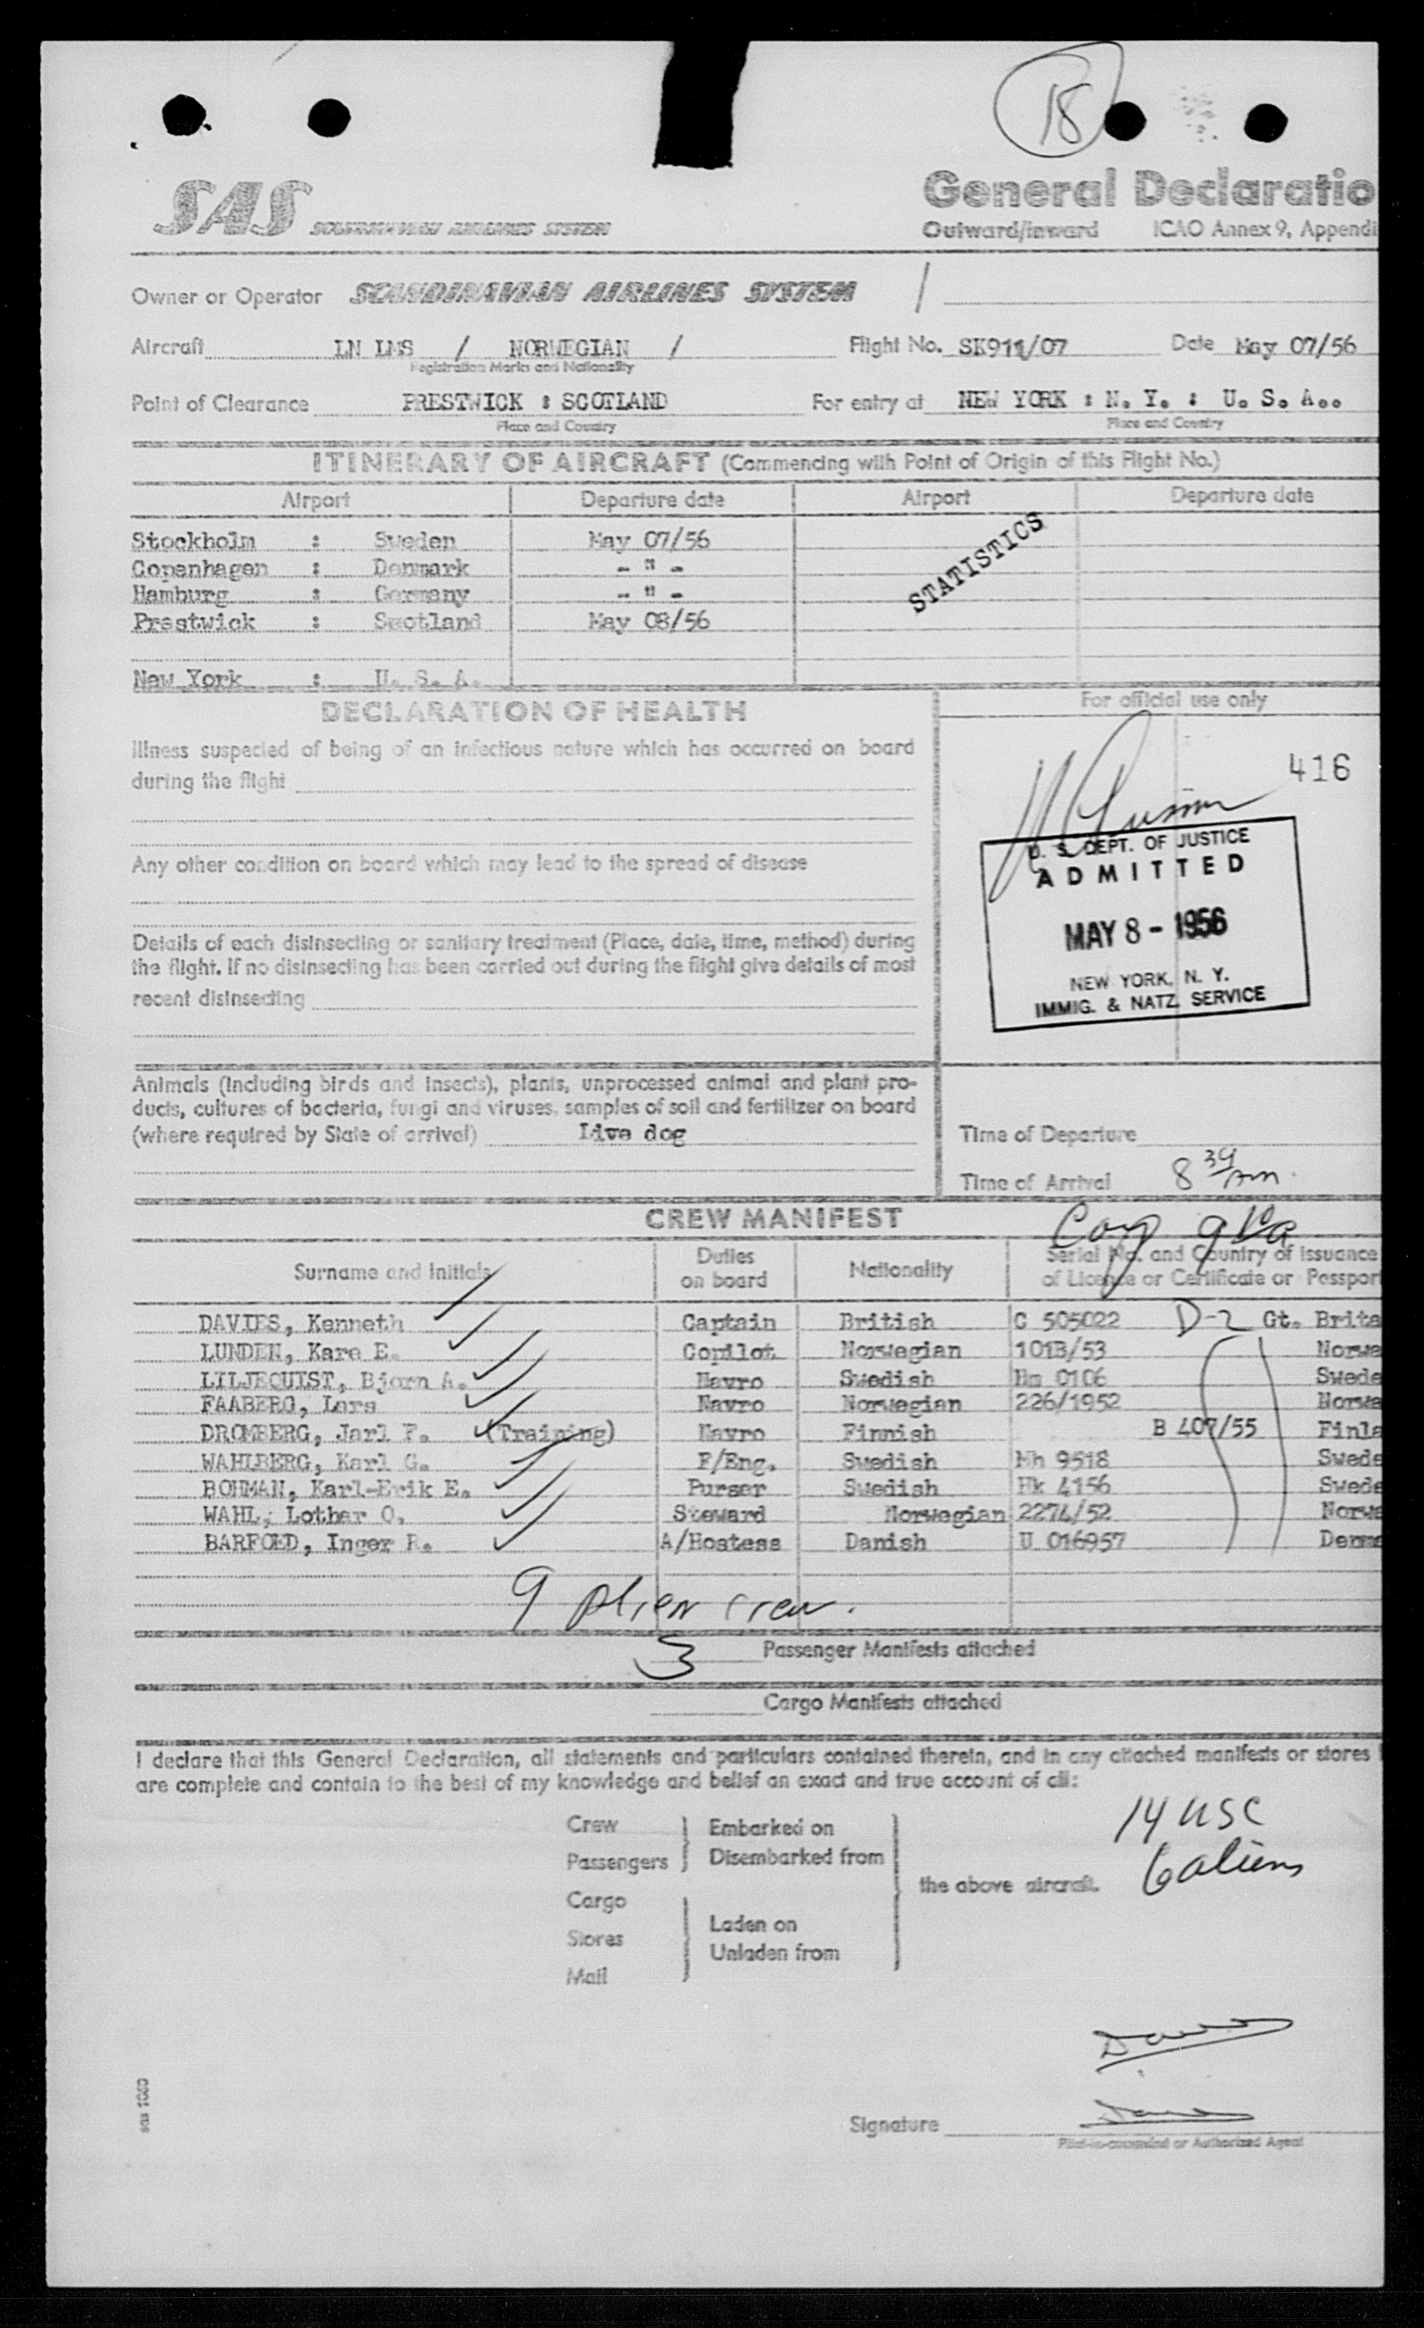 18
SAS SCANDINAVIAN AIRLINES SYSTEM
General Declaratio
Outward/Inward ICAO Annex 9, Appendi
Owner or Operator SCANDINAVIAN AIRLINES SYSTEM /
Aircraft LN LMS / NORWEGIAN / Flight No. SK911/07 Date May 07/56
Registration Marks and Nationality
Point of Clearance PRESTWICK : SCOTLAND For entry at NEW YORK : N. Y. : U. S. A..
Place and Country Place and Country
ITINERARY OF AIRCRAFT (Commencing with Point of Origin of this Flight No.)
Airport Departure date Airport Departure date
Stockholm : Sweden May 07/56
Copenhagen : Denmark - " -
Hamburg : Germany - " -
Prestwick : Scotland May 08/56
New York : U. S. A.
STATISTICS
DECLARATION OF HEALTH
For official use only
Illness suspected of being of an infectious nature which has occurred on board
during the flight
416
Any other condition on board which may lead to the spread of disease
U. S. DEPT. OF JUSTICE
ADMITTED
MAY 8 - 1956
NEW YORK, N. Y.
IMMIG. & NATZ. SERVICE
Details of each disinsecting or sanitary treatment (Place, date, time, method) during
the flight. If no disinsecting has been carried out during the flight give details of most
recent disinsecting
Animals (including birds and insects), plants, unprocessed animal and plant pro-
ducts, cultures of bacteria, fungi and viruses, samples of soil and fertilizer on board
(where required by State of arrival) Live dog
Time of Departure
Time of Arrival 8 39 Am.
CREW MANIFEST
Surname and Initials Duties on board Nationality Serial No. and Country of Issuance
of Licence or Certificate or Passpor
DAVIES, Kenneth Captain British C 505022 D-2 Gt. Brita
LUNDEN, Kare E. Copilot Norwegian 101B/53 Norwe
LILJEQUIST, Bjorn A. Navro Swedish Hm 0106 Swede
FAABERG, Lars Navro Norwegian 226/1952 Norwe
DROMBERG, Jarl F. (Training) Navro Finnish B 407/55 Finla
WAHLBERG, Karl G. F/Eng. Swedish Nh 9518 Swede
BOHMAN, Karl-Erik E. Purser Swedish Hk 4156 Swede
WAHL, Lothar O. Steward Norwegian 2274/52 Norwe
BARFOED, Inger R. A/Hostess Danish U 016957 Denma
9 Alien crew.
3 Passenger Manifests attached
Cargo Manifests attached
I declare that this General Declaration, all statements and particulars contained therein, and in any attached manifests or stores
are complete and contain to the best of my knowledge and belief an exact and true account of all:
14 USC
6 aliens
Crew
Passengers
Embarked on
Disembarked from
the above aircraft.
Cargo
Stores
Mail
Laden on
Unladen from
Davies
Signature Davies
Pilot-in-command or Authorized Agent